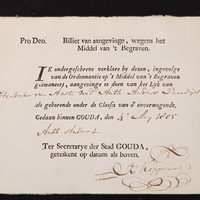 Pro Deo. Billiet van aangevinge, wegens het
Middel van 't Begraven.
IK ondergeschreve verklare by dezen, ingevolge
van de Ordonnantie op 't Middel van 't Begraven
geëmaneert, aangevinge te doen van het Lyk van
als gehorende onder de Classis van d' onvermogende.
Gedaan binnen GOUDA, den 4 May 1805
Ter Secretarye der Stad GOUDA,
geteikent op datum als boven.